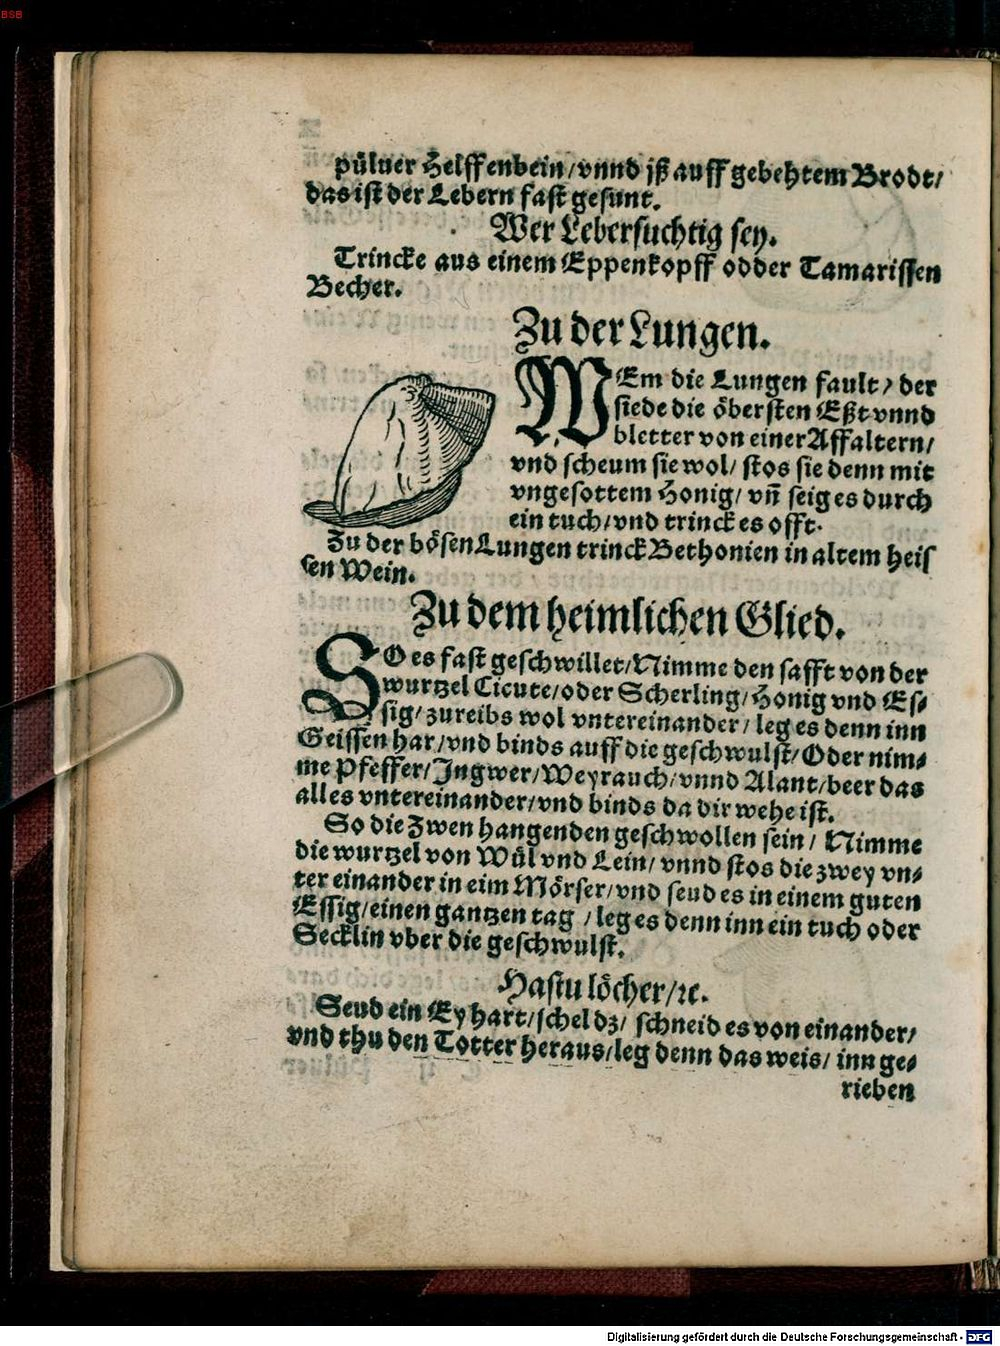 BSB
púluer Helffenbein/vnnd jß auff gebehtem Brodt/
das ist der Lebern fast gesunt.
Wer Lebersuchtig sey.
Trincke aus einem Eppenkopff odder Tamarissen
Becher.
Zu der Lungen.
WEm die Lungen fault/ der
siede die öbersten Eßt vnnd
bletter von einer Affaltern/
vnd scheum sie wol/ stos sie denn mit
vngesottem Honig/ vñ seig es durch
ein tuch/vnd trinck es offt.
Zu der bösen Lungen trinck Bethonien in altem heis
sen Wein.
Zu dem heimlichen Glied.
SO es fast geschwillet/Nimme den safft von der
wurtzel Cicute/oder Scherling/Honig vnd Es⸗
sig/zureibs wol vntereinander/leg es denn inn
Geissen har/vnd binds auff die geschwulst/Oder nim⸗
me Pfeffer/Ingwer/Weyrauch/vnnd Alant/beer das
alles vntereinander/vnd binds da dir wehe ist.
So die Zwen hangenden geschwollen sein/ Nimme
die wurtzel von Wúl vnd Lein/vnnd stos die zwey vn⸗
ter einander in eim Mörser/vnd seud es in einem guten
Essig/einen gantzen tag /leg es denn inn ein tuch oder
Secklin vber die geschwulst.
Hastu löcher/ꝛc.
Seud ein Ey hart/schel dz/ schneid es von einander/
vnd thu den Totter heraus/leg denn das weis/ inn ge⸗
rieben
Digitalisierung gefördert durch die Deutsche Forschungsgemeinschaft - DFG